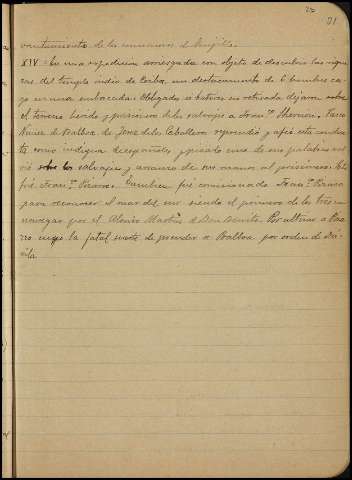 22
31
de los
XIV. En una expedicion arriesgada con objeto de descubrir las rique
zas del templo indio de un destacamento de 6 hombres ca
yo en una emboscada. Obligados á batirse en retirada dejaron sobre
el terreno herido y prisionero de los salvajes á Fran.co Hernan. Vasco
Nuñez de Balboa de Jerez de los Caballeros reprendió y afeó esta conduc
ta como indigna de españoles y picado uno de sus palabras vol
vió sobre los salvajes y arrancó de sus manos al prisionero. Este
fué Fran.co Pizarro. Tambien fué comisionado Fran.co Pizarro
para reconocer el mar del sur siendo el primero de los tres en
navegar por el Alonso Martin de Don Benito. Por ultimo á Piza
rro cupo la fatal suerte de prender á Balboa por orden de Dá-
vila